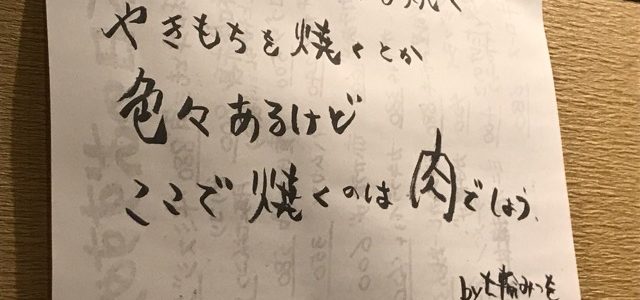 やきもちを焼くとか
色々あるけど
ここで焼くのは肉でしょう。
by七輪みつを